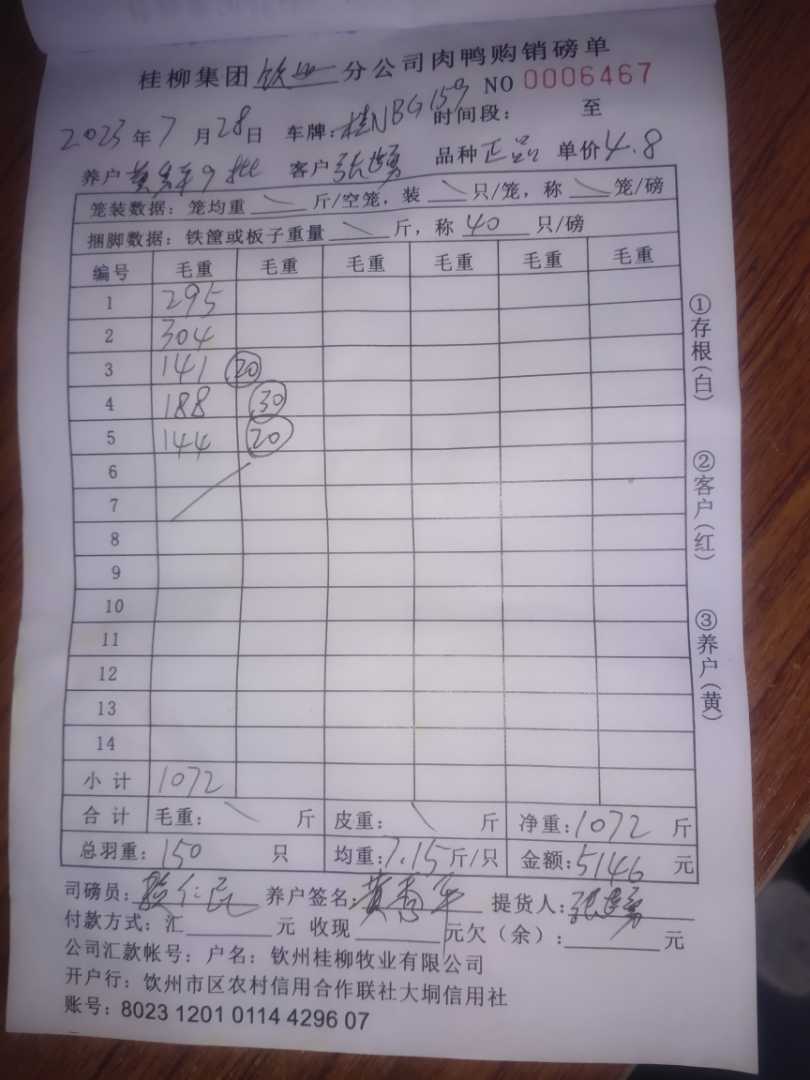 桂柳集团钦州分公司肉鸭购销磅单
NO 0006467
2023年7月28日 车牌:桂NBG159 时间段: 至
养户 客户 张 品种 正品 单价4.8
笼装数据: 笼均重 斤/空笼, 装 只/笼, 称 笼/磅
捆脚数据: 铁筐或板子重量 斤, 称 40 只/磅
编号 毛重 毛重 毛重 毛重 毛重 毛重
1 295
2 304
3 141 20
4 188 30
5 144 20
6
7
8
9
10
11
12
13
14
小计 1072
合计 毛重: 斤 皮重: 斤 净重:1072 斤
总羽重: 150 只 均重:7.15斤/只 金额:5146 元
司磅员: 仁民 养户签名: 黄 平 提货人: 张
付款方式: 汇 元 收现 元欠(余): 元
公司汇款帐号: 户名: 钦州桂柳牧业有限公司
开户行: 钦州市区农村信用合作联社大垌信用社
账号: 8023 1201 0114 4296 07
①存根(白)
②客户(红)
③养户(黄)